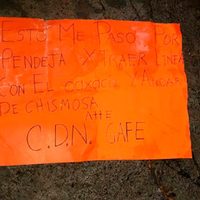 ESTO ME PASO POR
PENDEJA X TRAER LINEA
CON EL OAXACO Y ANDAR
DE CHISMOSA
ATTE
C.D.N. GAFE